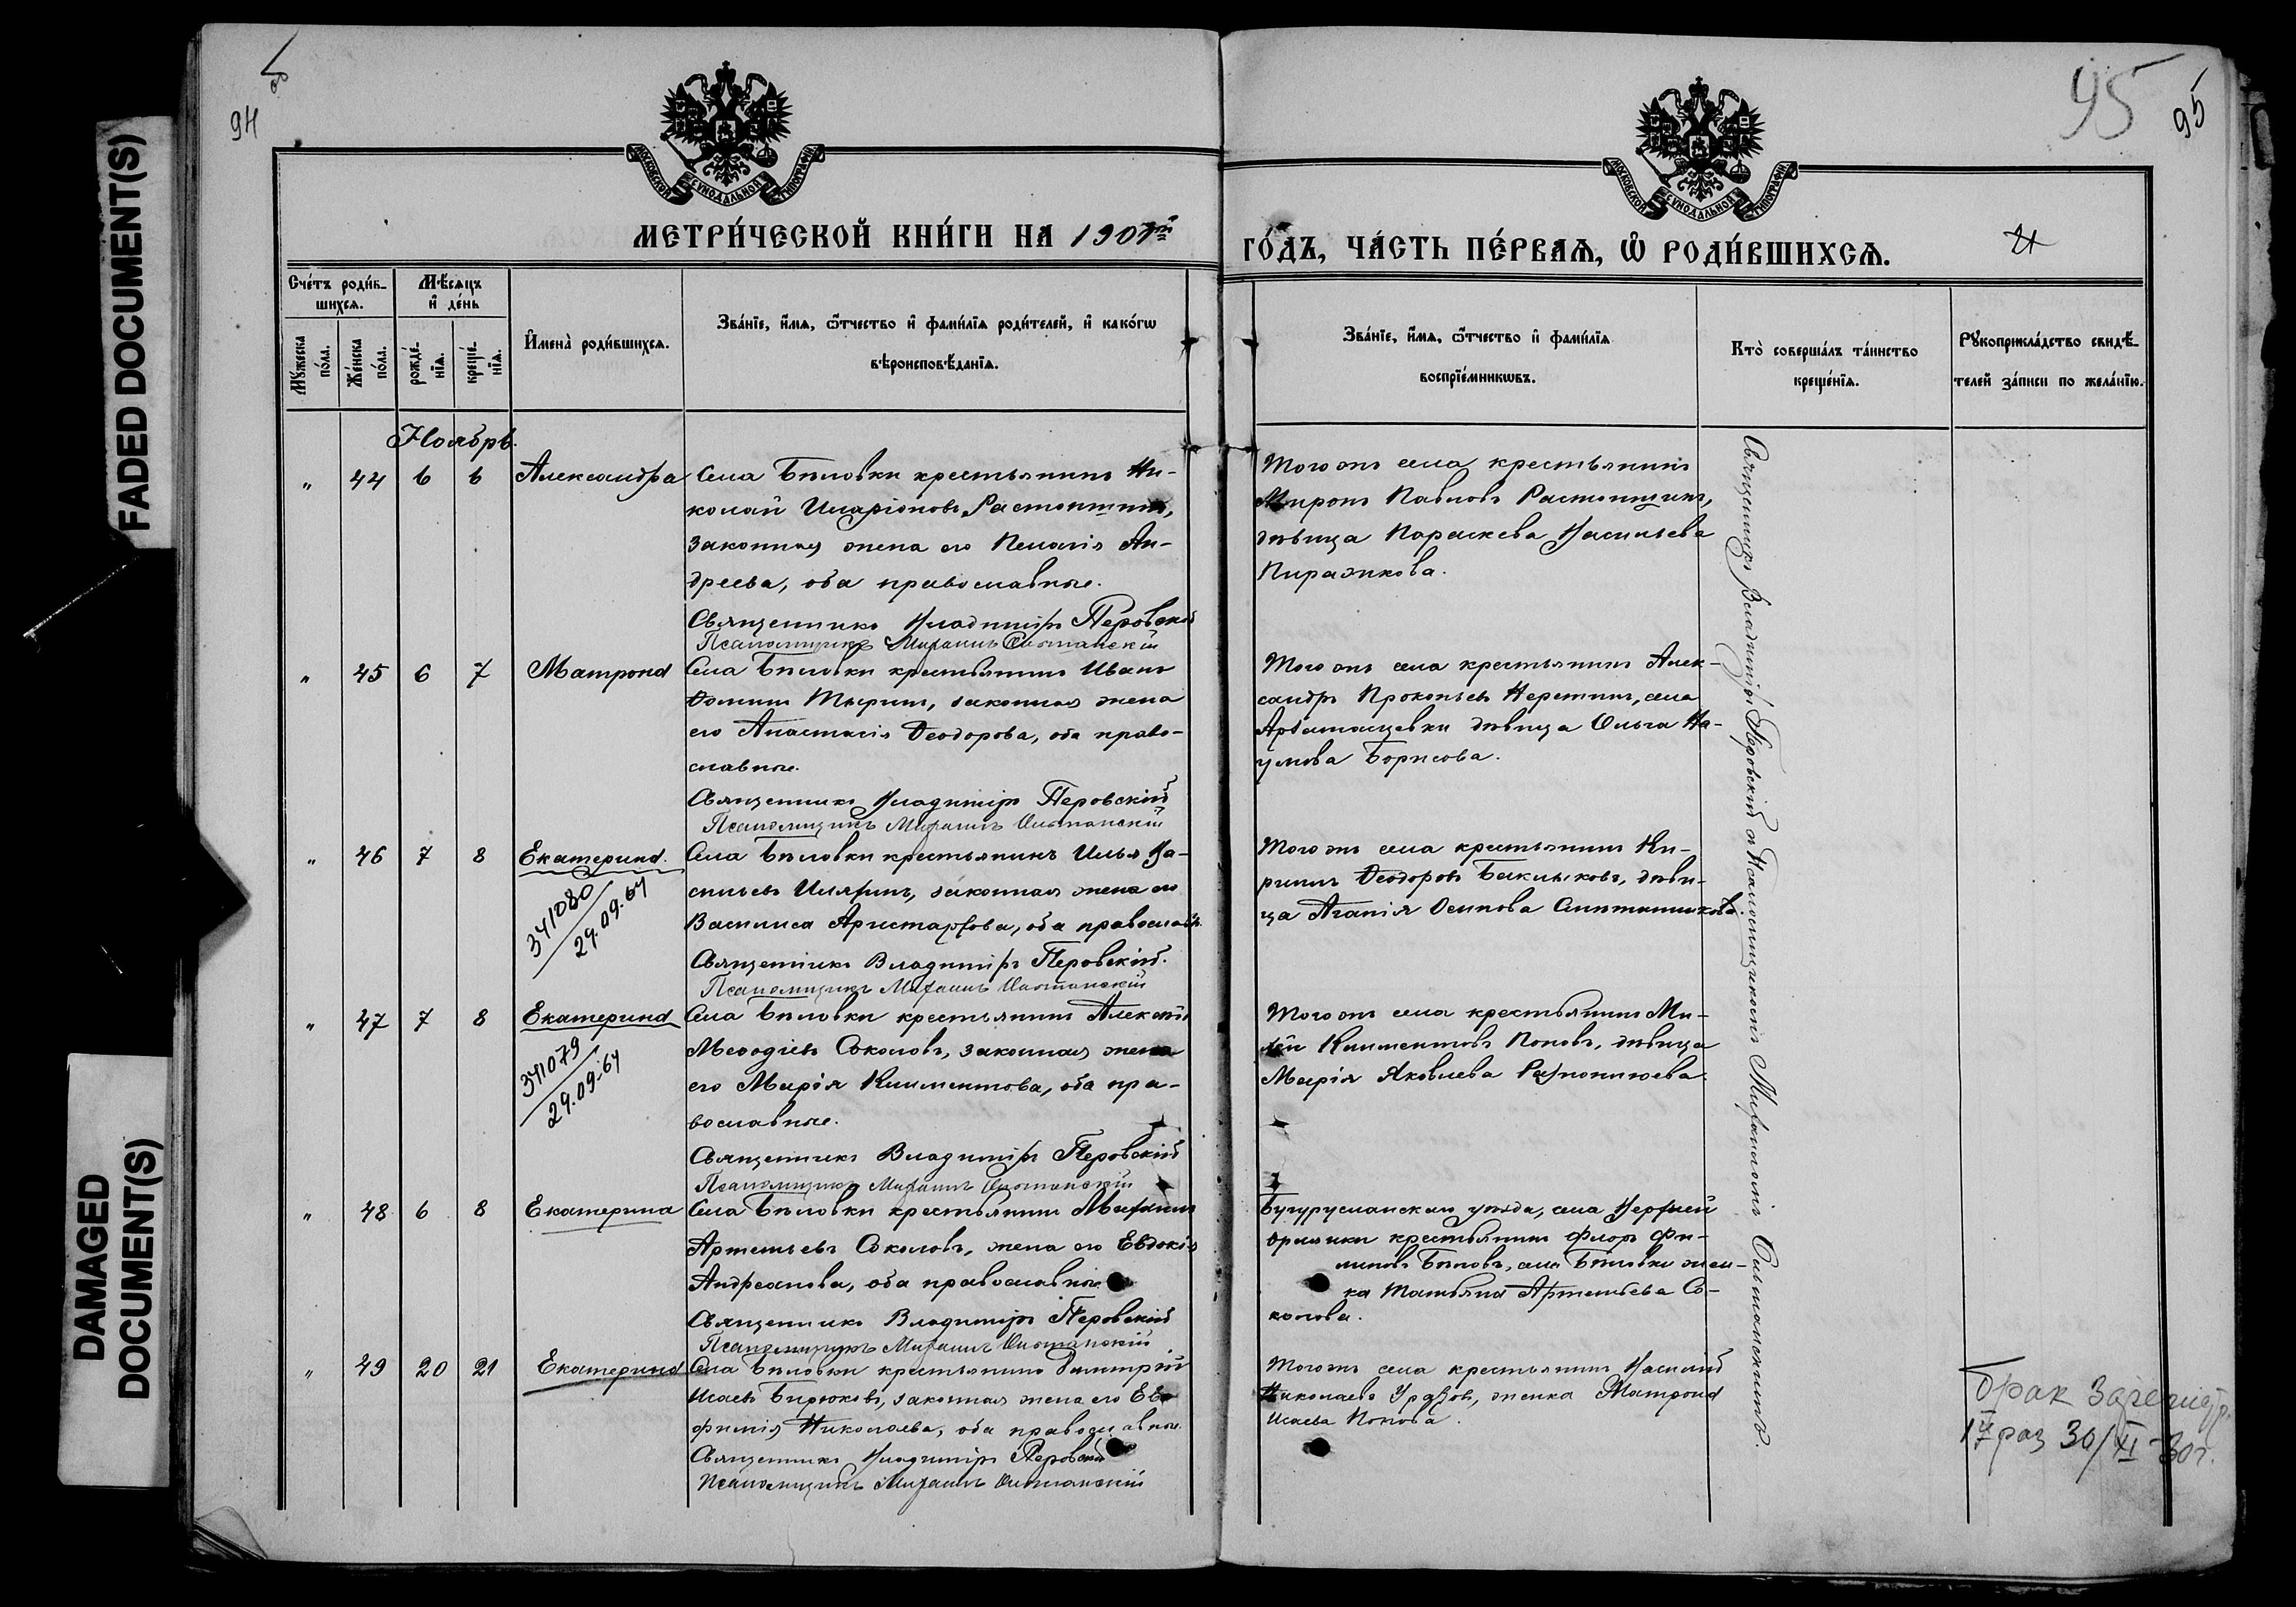 FADED DOCUMENT(S)
DAMAGED
DOCUMENT(S)
94
95
95
МОСКОВСКОЙ СѴНОДАЛЬНОЙ ТИПОГРАФІИ
МОСКОВСКОЙ СѴНОДАЛЬНОЙ ТИПОГРАФІИ
МЕТРИ́ЧЕСКОЙ КНИ́ГИ НА 1901й
ГО́ДЪ, ЧА́СТЬ ПЕ́РВАѦ, Ѽ РОДИ́ВШИХСѦ.
Сче́тъ роди́в-
шихсѧ.
Мꙋ́жеска
по́ла.
Же́нска
по́ла.
Мѣ́сѧцъ
и҆ де́нь
рожде́-
нїѧ.
креще́-
нїѧ.
И҆мена̀ роди́вшихсѧ.
Зва́нїе, и҆́мѧ, ѻ҆́тчество и҆ фами́лїѧ роди́телей, и҆ како́гѡ
вѣроисповѣ́данїѧ.
Зва́нїе, и҆́мѧ, ѻ҆́тчество и҆ фами́лїѧ
воспрїе́мникѡвъ.
Кто̀ соверша́лъ та́инство
креще́нїѧ.
Рꙋкоприкла́дство свидѣ́-
телей за́писи по жела́нїю.
Ноябрь.
" 44 6 6 Александра
Села Бѣловки крестьянинъ Ни-
колай Иларіоновъ Растопшинъ,
законная жена его Пелагія Ан-
дреева, оба православные.
Священникъ Владиміръ Перовскій
Псаломщикъ Михаилъ
Того же села крестьянинъ
Миронъ Павловъ Растопшинъ,
дѣвица Параскева Васильева
Пиражкова.
" 45 6 7 Матрона
Села Бѣловки крестьянинъ Иванъ
Ѳоминъ Тыринъ, законная жена
его Анастасія Ѳеодорова, оба право-
славные.
Священникъ Владиміръ Перовскій
Псаломщикъ Михаилъ
Того же села крестьянинъ Алек-
сандръ Прокопьевъ Неретинъ, села
дѣвица Ольга На-
умова Борисова.
" 46 7 8 Екатерина.
341080
29.09.64
Села Бѣловки крестьянинъ Илья Ва-
сильевъ законная жена его
Василиса Аристархова, оба православн.
Священникъ Владиміръ Перовскій.
Псаломщикъ Михаилъ
Того же села крестьянинъ Ки-
риллъ Ѳеодоровъ дѣви-
ца Агапія Осипова
" 47 7 8 Екатерина
341079
29.09.64
Села Бѣловки крестьянинъ Алексѣй
Меѳодіевъ Соколовъ, законная жена
его Марія Климентова, оба пра-
вославные.
Священникъ Владиміръ Перовскій
Псаломщикъ Михаилъ
Того же села крестьянинъ Ми-
Климентовъ Поповъ, дѣвица
Марія Яковлева
" 48 6 8 Екатерина
Села Бѣловки крестьянинъ Михаилъ
Артемьевъ Соколовъ, жена его Евдокія
Андреанова, оба православные
Священникъ Владиміръ Перовскій
Псаломщикъ Михаилъ
Бугурусланскаго уѣзда, села Верхней
крестьянинъ Флоръ Фи-
липовъ Бѣловъ, села Бѣловки жен-
ка Татьяна Артемьева Со-
колова.
" 49 20 21 Екатерина
Села Бѣловки крестьянинъ Димитрій
Исаевъ Бирюковъ, законная жена его Ев-
фимія Николаева, оба православные.
Священникъ Владиміръ Перовскій
Псаломщикъ Михаилъ
Того же села крестьянинъ Василій
Николаевъ женка Матрона
Исаева Попова.
Священникъ Владиміръ Перовскій съ Псаломщикомъ Михаиломъ
Брак
раз 30/XI-30г.